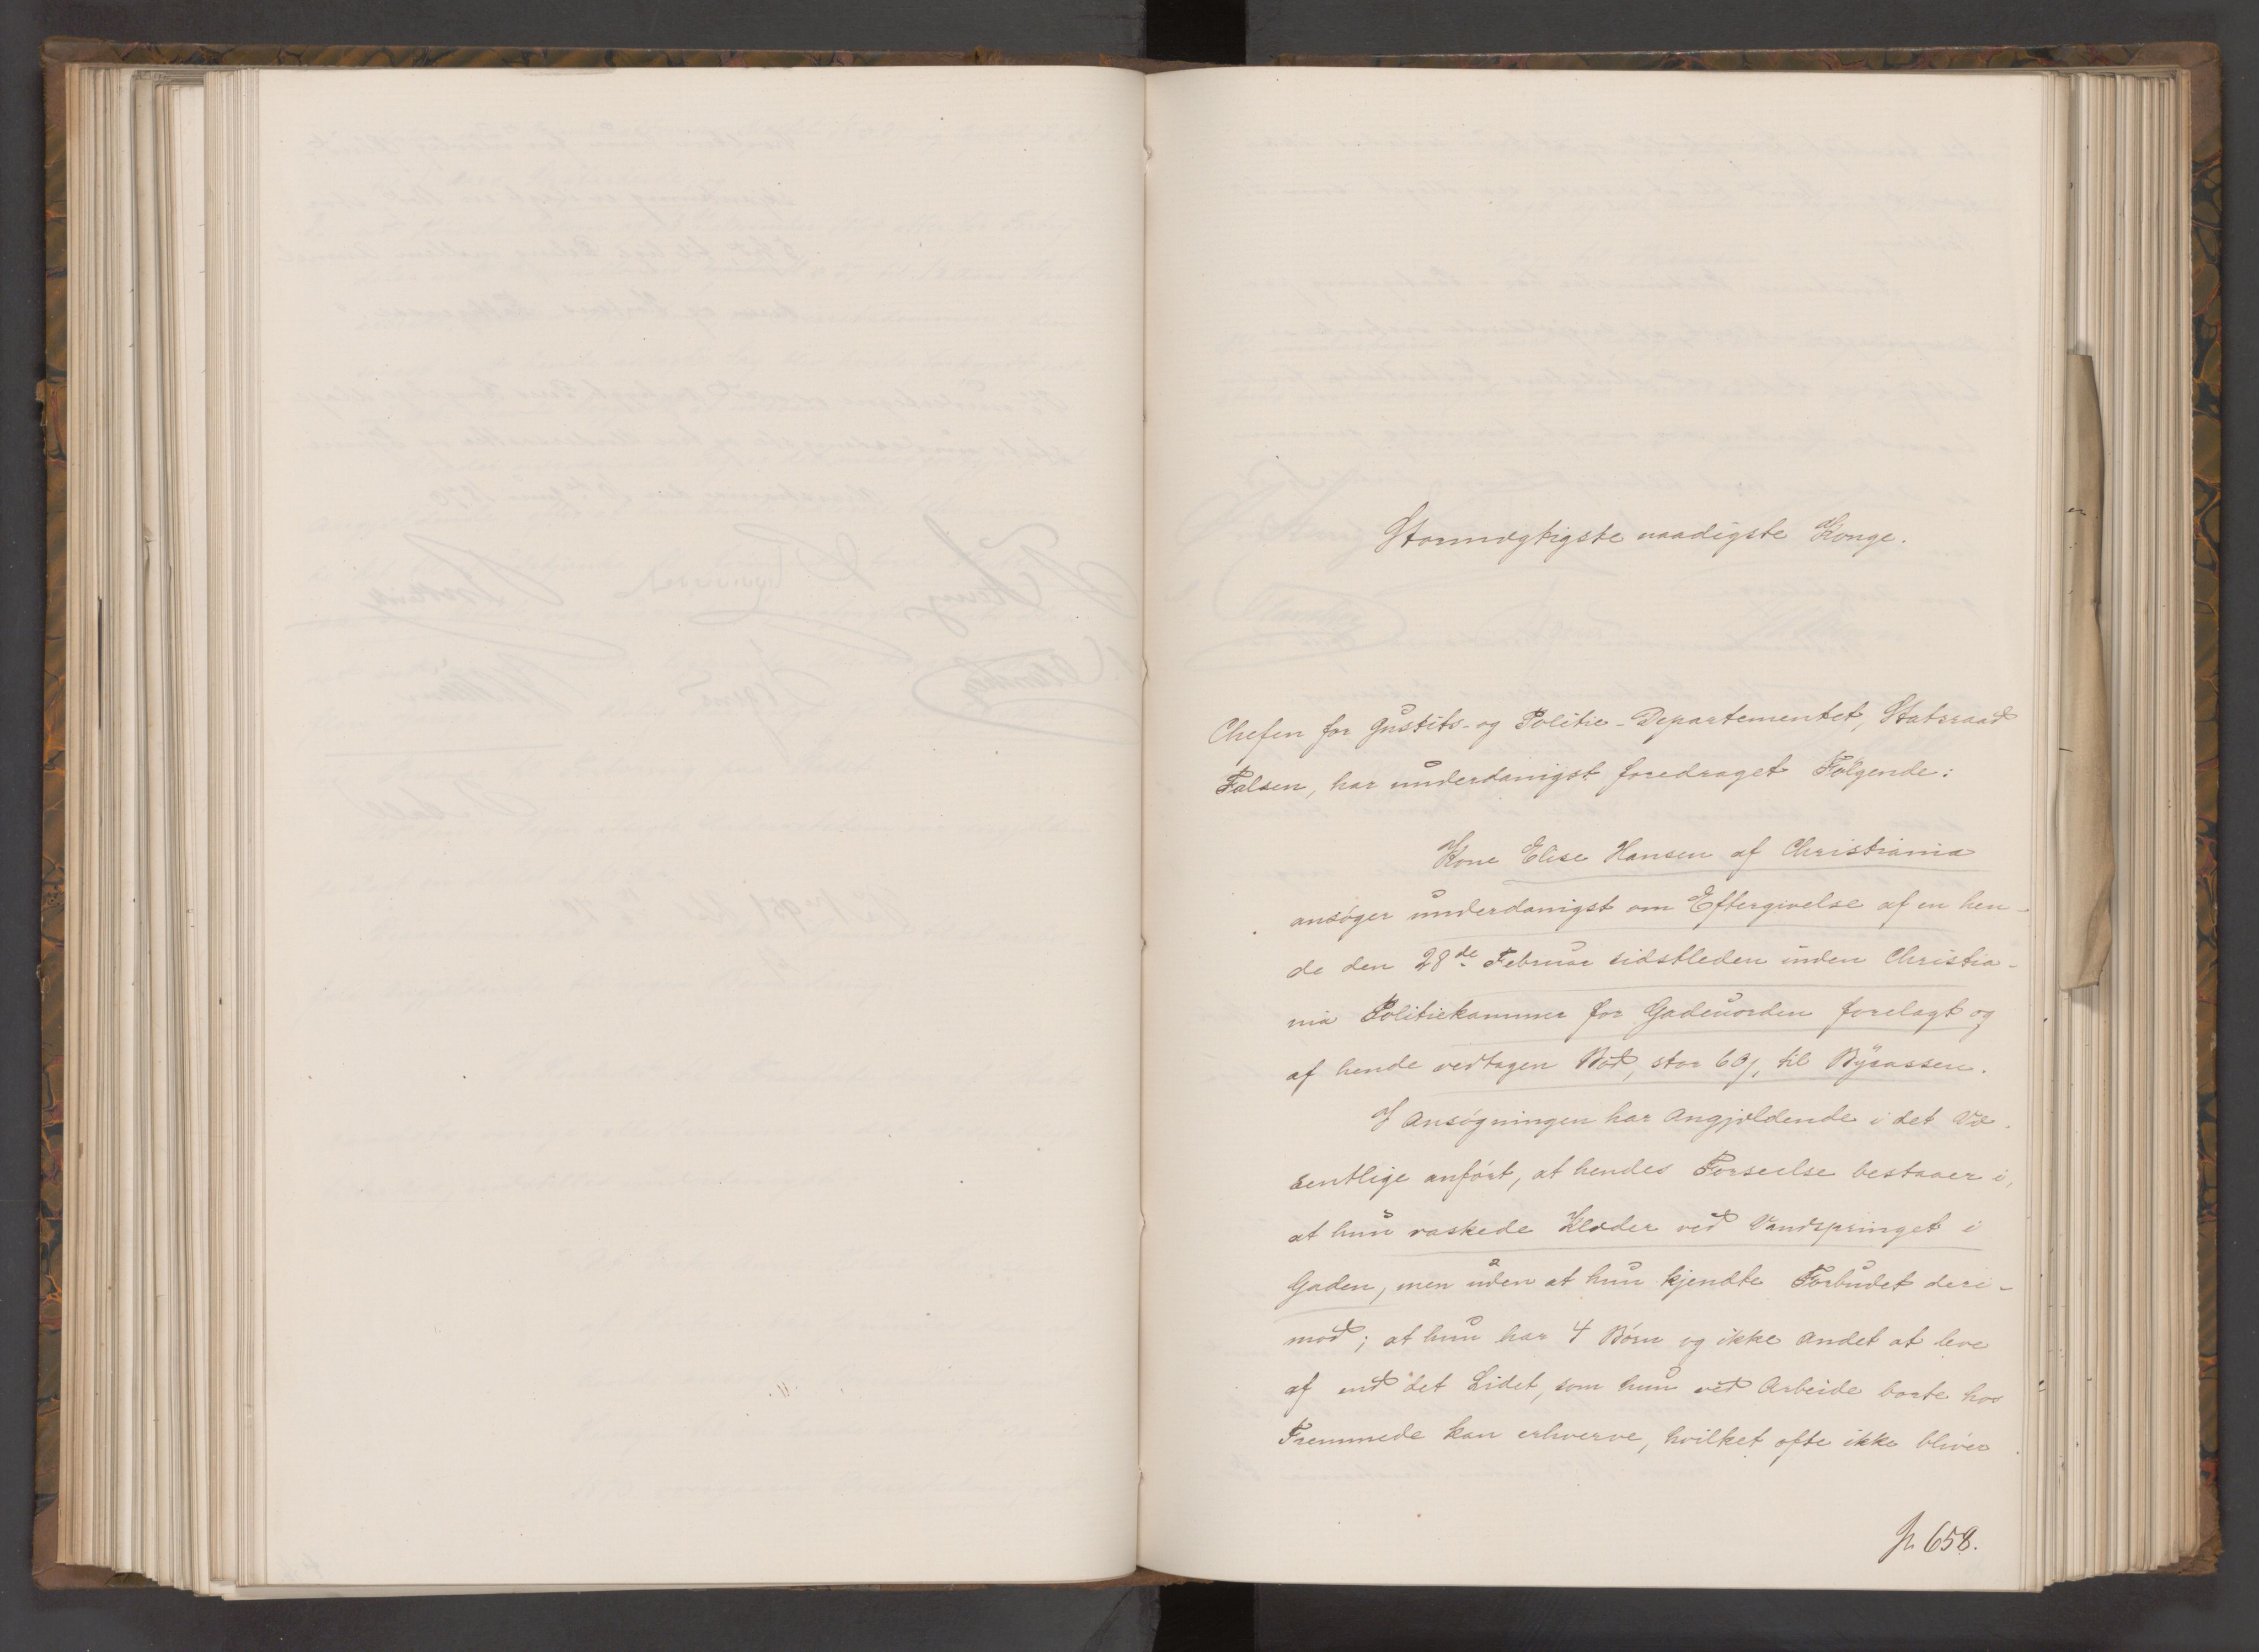 Stormægtigste naadigste Konge.
Chefen for Justits- og Politie-Departementet, Statsraad
Falsen, har underdanigst foredraget Følgende:
Kone Elise Hansen af Christiania
ansøger underdanigst om Eftergivelse af en hen-
de den 28de Februar sidstleden inden Christia-
nia Politiekammer for Gadeuorden forelagt og
af hende vedtagen Bod, stor 60 β, til Bycassen.
I Ansøgningen har Angjældende i det Væ-
sentlige anført, at hendes Forseelse bestaaer i,
at hun vaskede Klæder ved Vandspringet i
Gaden, men uden at hun kjendte Forbudet deri-
mod; at hun har 4 Børn og ikke Andet at leve
af end det Lidet, som hun ved Arbeide borte hos
Fremmede kan erhverve, hvilket ofte ikke bliver
658.